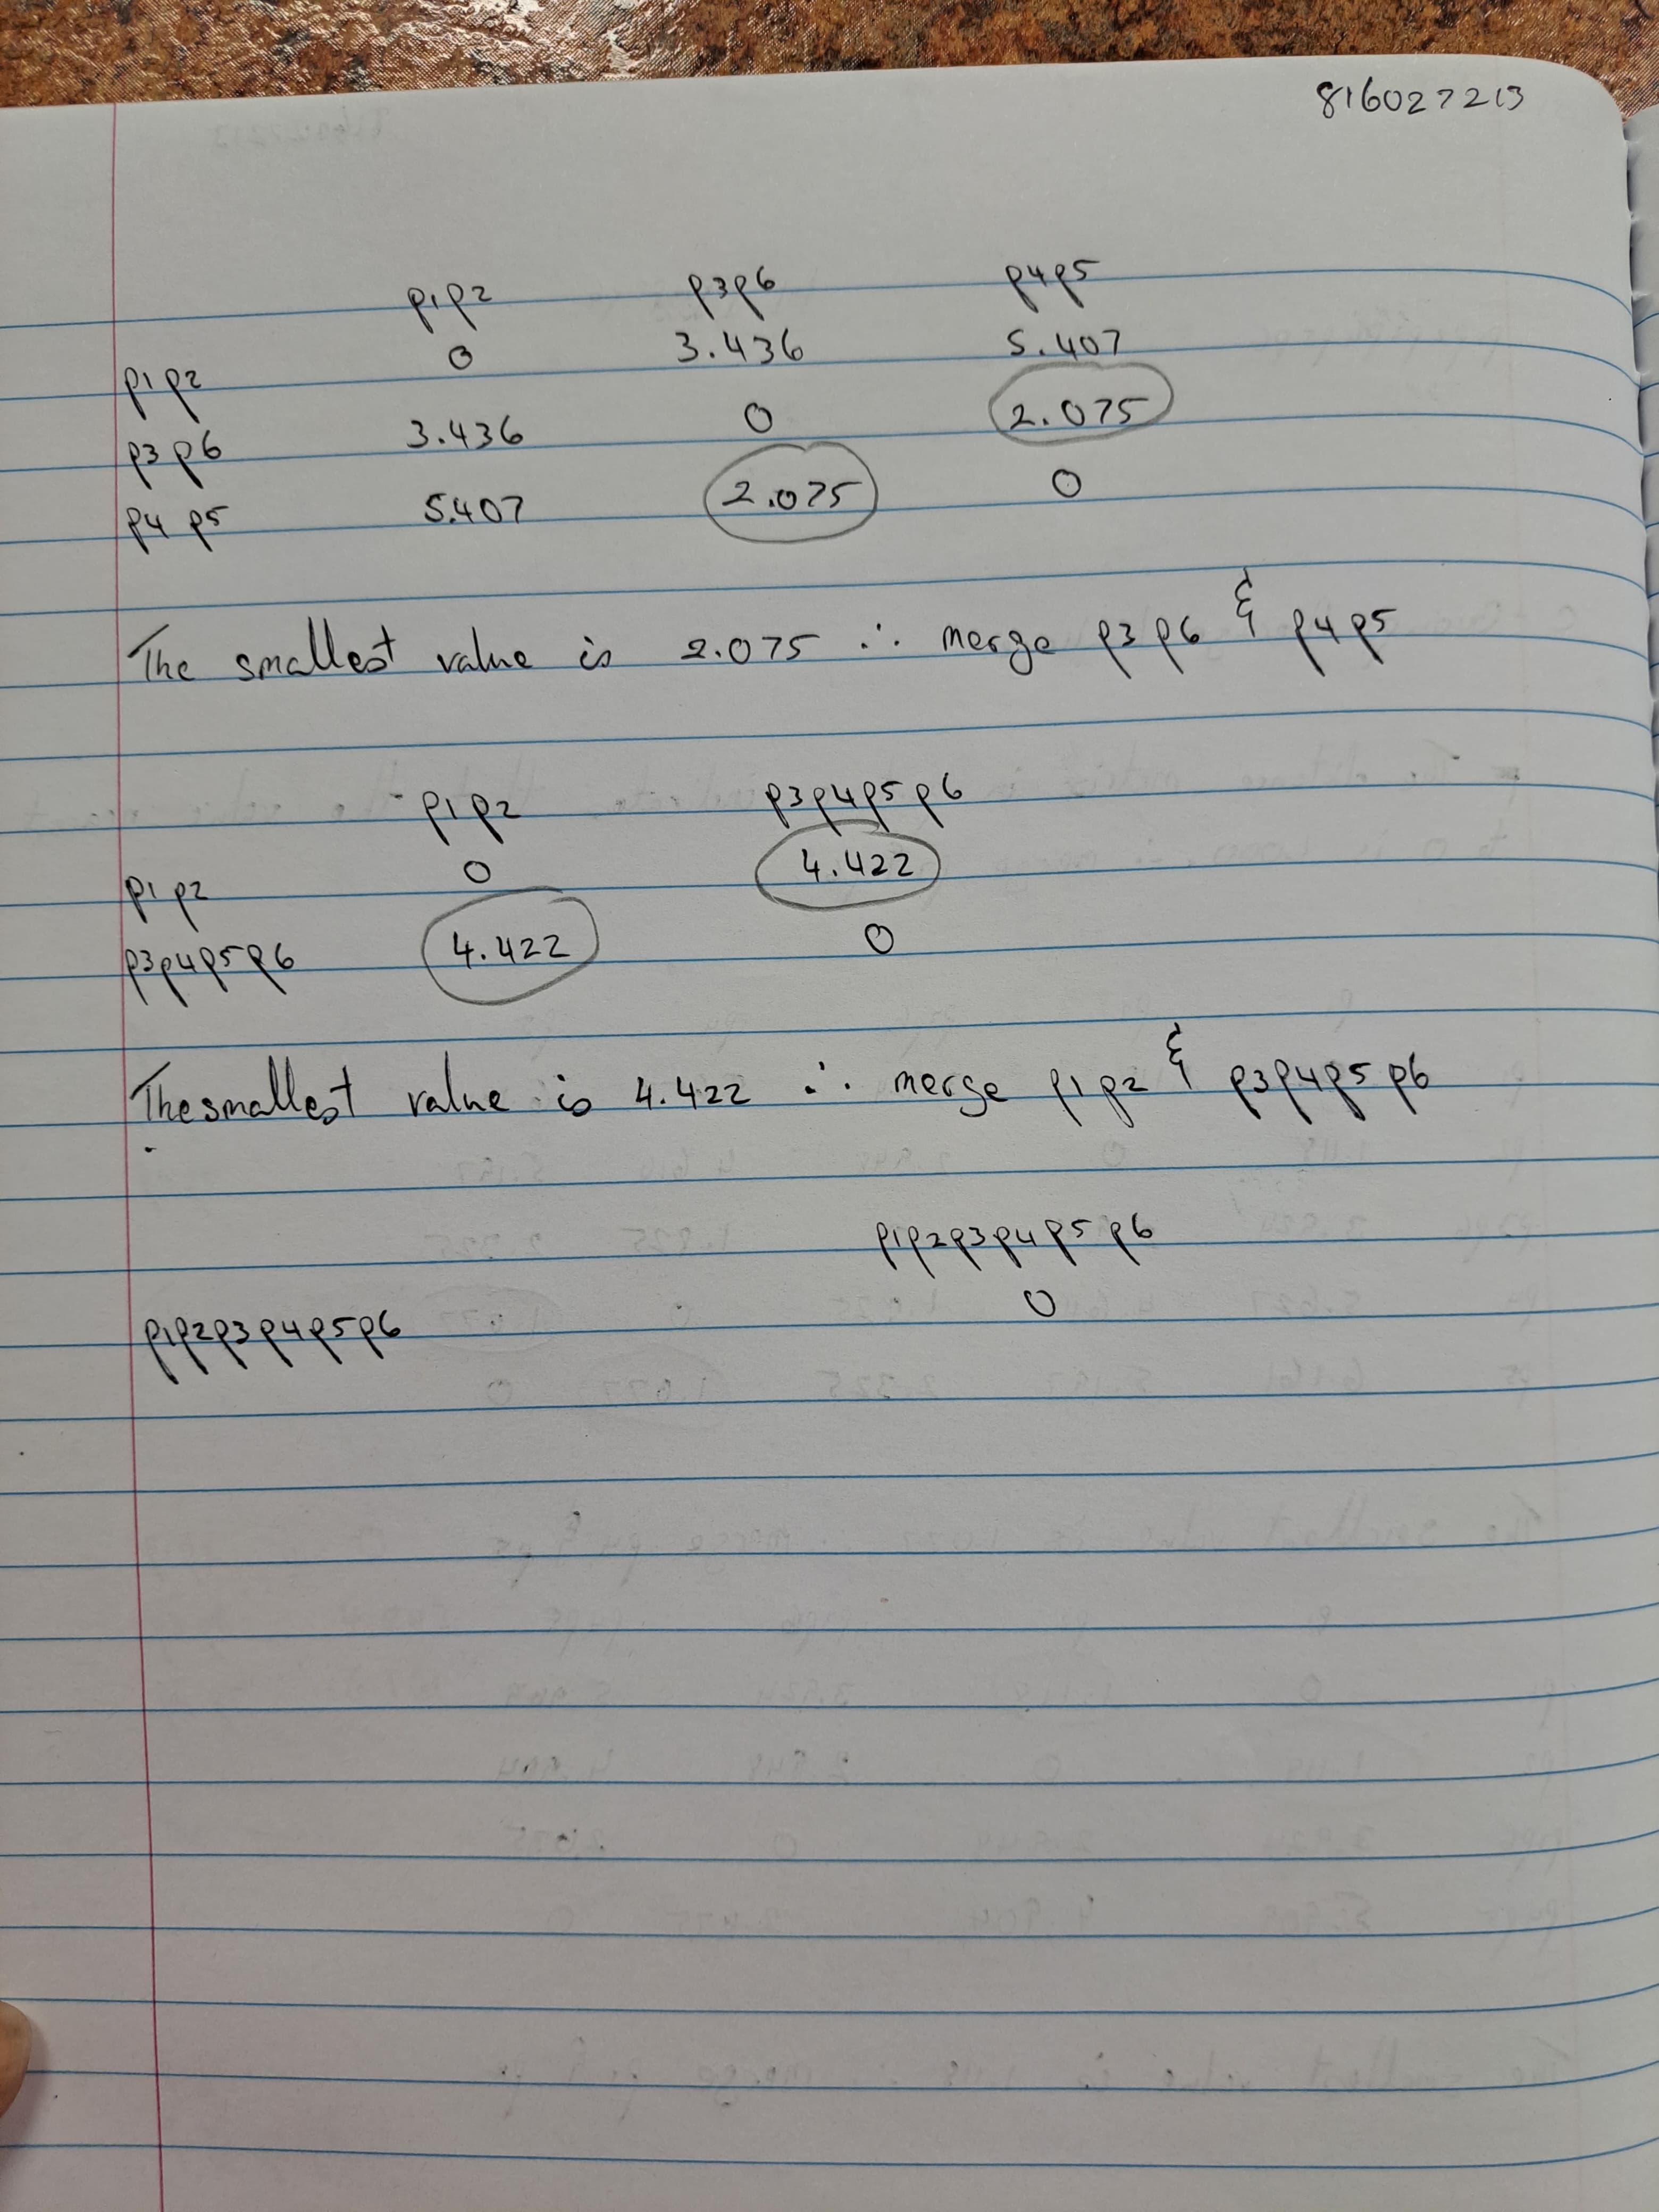 816027213
p1p2 p3p6 p4p5
p1p2 0 3.436 5.407
p3p6 3.436 0 2.075
p4 p5 5.407 2.075 0
The smallest value is 2.075 ∴ merge p3p6 & p4p5
p1p2 p3p4p5p6
p1p2 0 4.422
p3p4p5p6 4.422 0
The smallest value is 4.422 ∴ merge p1p2 & p3p4p5p6
p1p2p3p4p5p6
p1p2p3p4p5p6 0